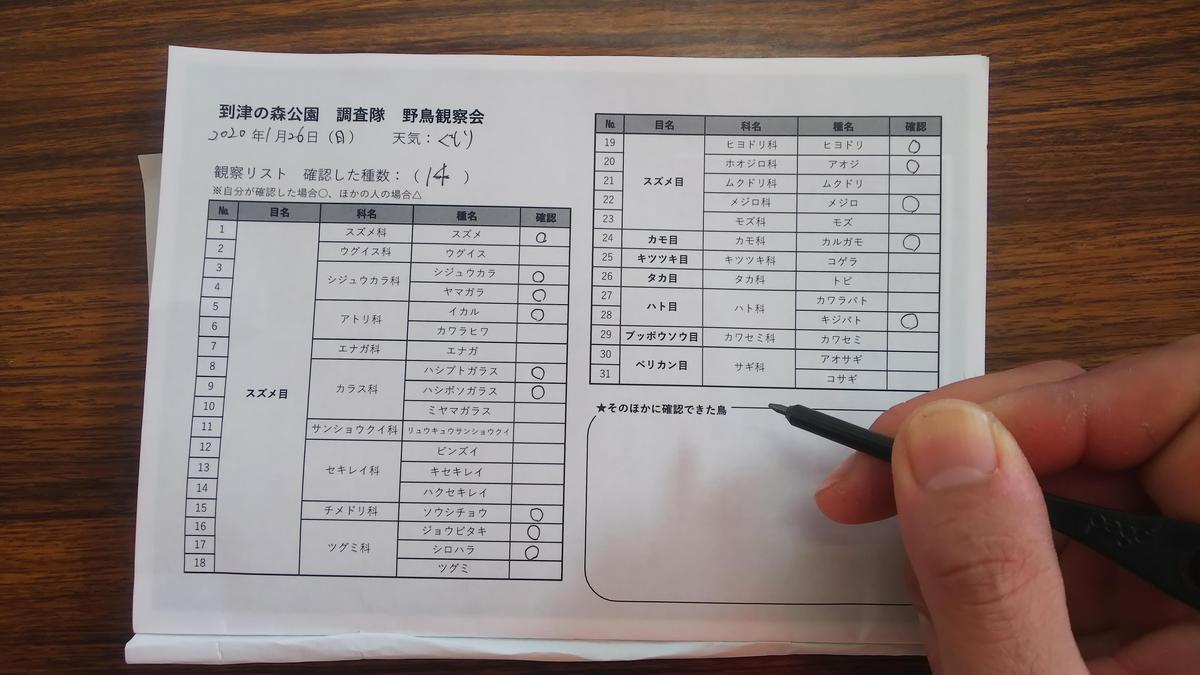 到津の森公園　調査隊　野鳥観察会
2020年1月26日（日）　天気：くもり
観察リスト　確認した種数：（ 14 ）
※自分が確認した場合○、ほかの人の場合△
№ 目名 科名 種名 確認
1 スズメ目 スズメ科 スズメ ○
2 ウグイス科 ウグイス
3 シジュウカラ科 シジュウカラ ○
4 ヤマガラ ○
5 アトリ科 イカル ○
6 カワラヒワ
7 エナガ科 エナガ
8 カラス科 ハシブトガラス ○
9 ハシボソガラス ○
10 ミヤマガラス
11 サンショウクイ科 リュウキュウサンショウクイ
12 セキレイ科 ビンズイ
13 キセキレイ
14 ハクセキレイ
15 チメドリ科 ソウシチョウ ○
16 ツグミ科 ジョウビタキ ○
17 シロハラ ○
18 ツグミ
№ 目名 科名 種名 確認
19 スズメ目 ヒヨドリ科 ヒヨドリ ○
20 ホオジロ科 アオジ ○
21 ムクドリ科 ムクドリ
22 メジロ科 メジロ ○
23 モズ科 モズ
24 カモ目 カモ科 カルガモ ○
25 キツツキ目 キツツキ科 コゲラ
26 タカ目 タカ科 トビ
27 ハト目 ハト科 カワラバト
28 キジバト ○
29 ブッポウソウ目 カワセミ科 カワセミ
30 ペリカン目 サギ科 アオサギ
31 コサギ
★そのほかに確認できた鳥